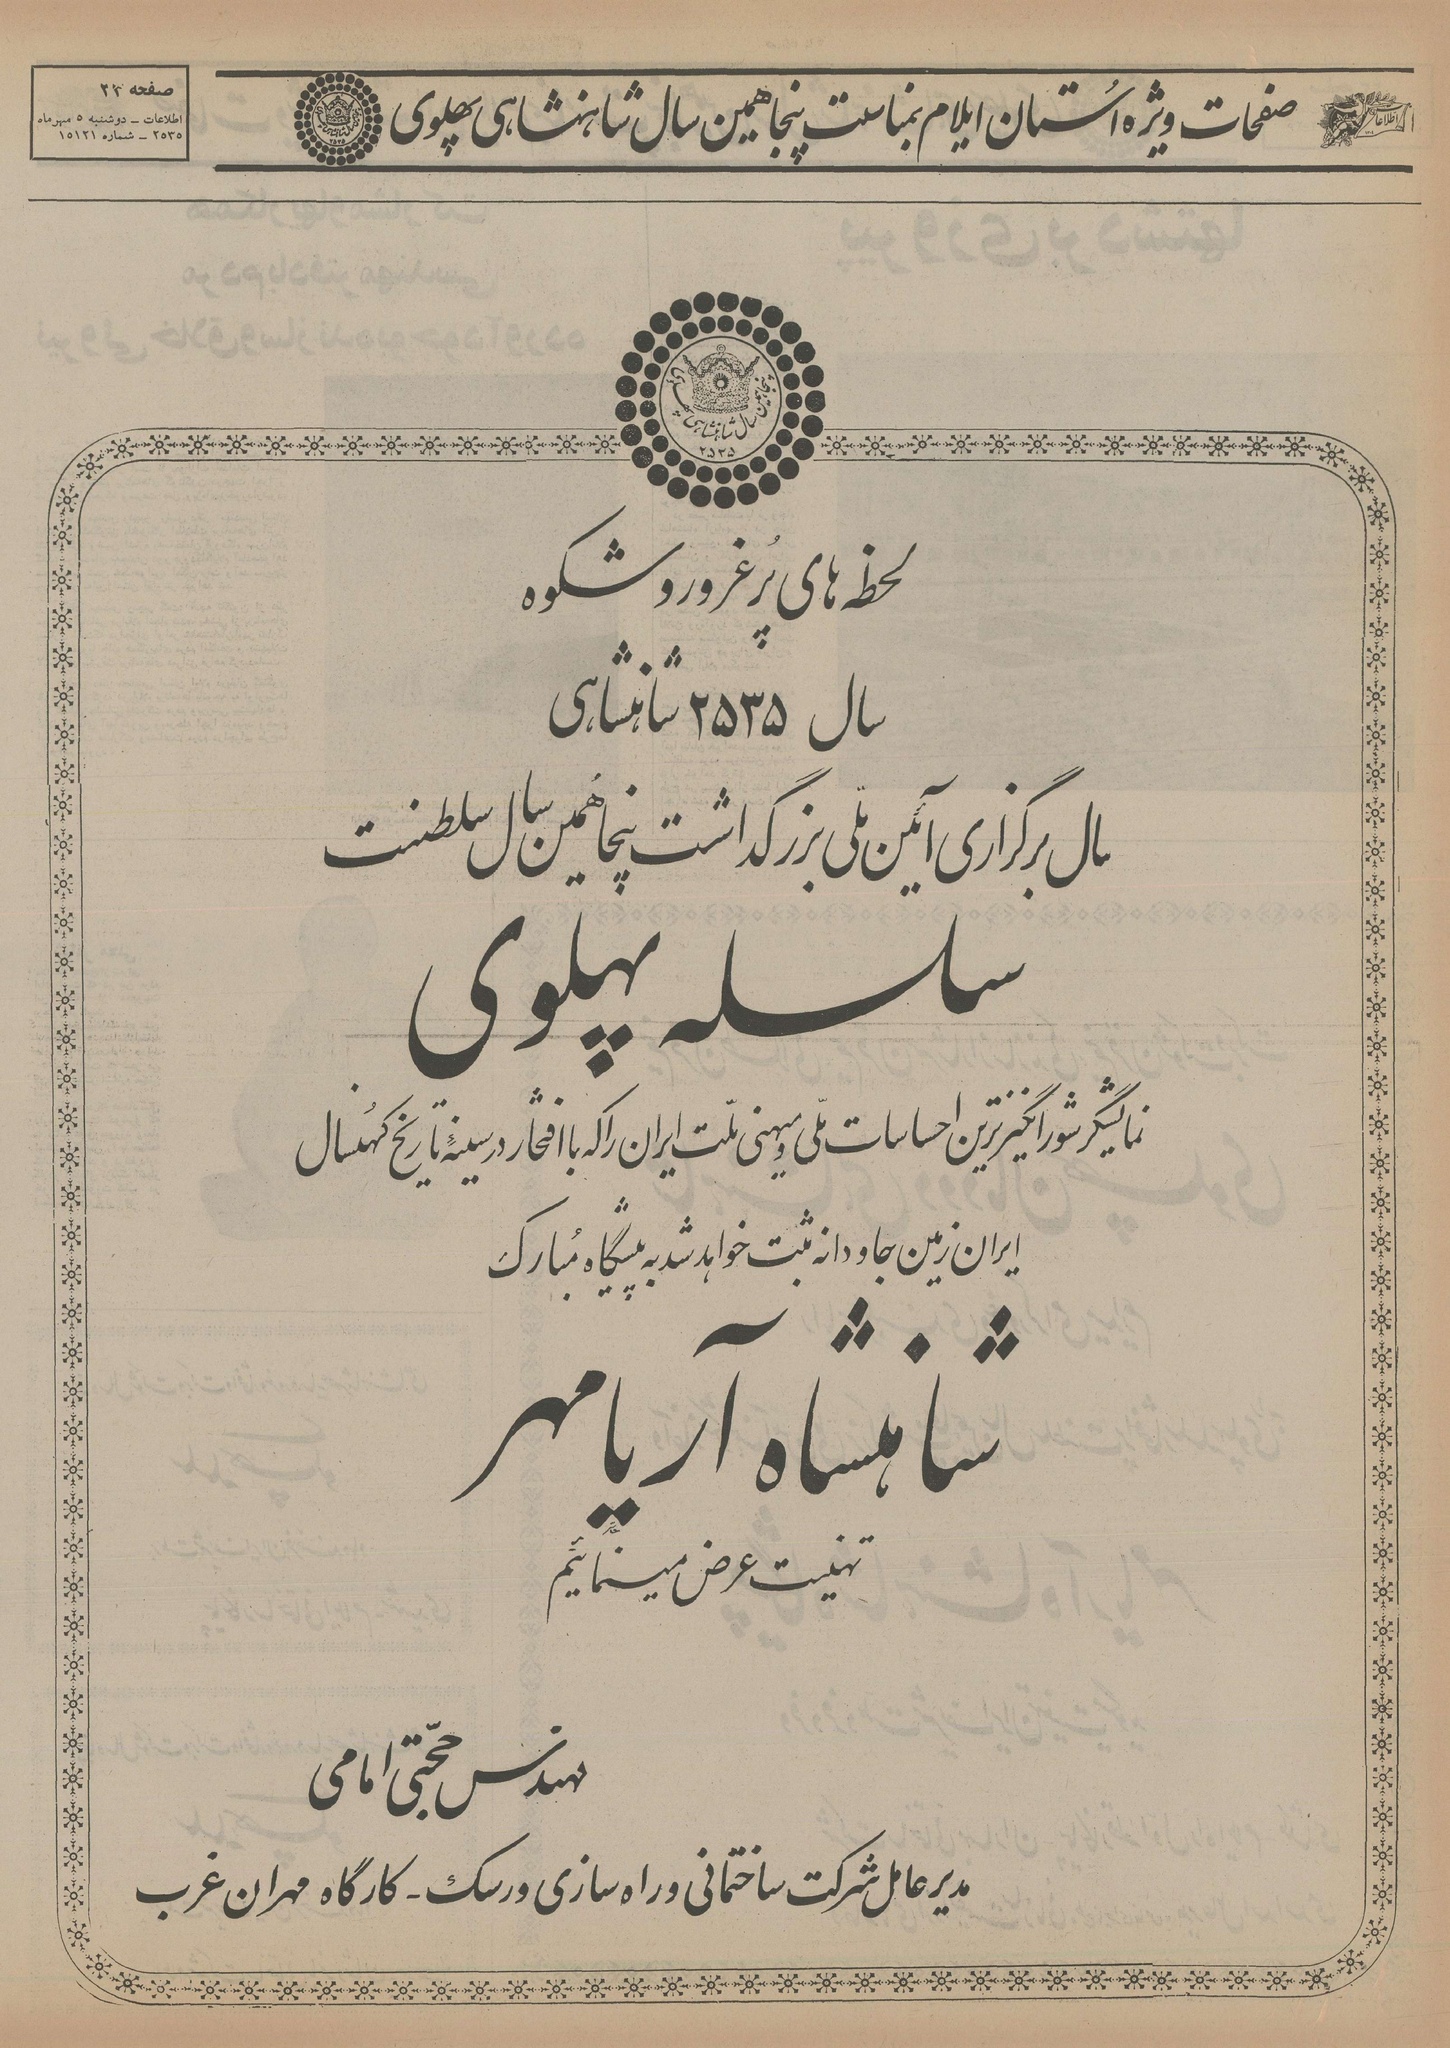 صفحات ویژه استان ایلام بمناسبت پنجاهمین سال شاهنشاهی پهلوی
صفحه ۲۴
اطلاعات ـ دوشنبه ۵ مهرماه
۲۵۳۵ ـ شماره ۱۵۱۲۱
پنجاهمین سال شاهنشاهی پهلوی
۲۵۳۵
لحظه های پُر غرور و شکوه
سال ۲۵۳۵ شاهنشاهی
سال برگزاری آئین ملّی بزرگداشت پنجاهُمین سال سلطنت
سلسله پهلوی
نمایشگر شورانگیزترین احساسات ملّی و میهنی ملّت ایران را که با افتخار در سینهٔ تاریخ کهُنسال
ایران زمین جاودانه ثبت خواهد شد به پیشگاه مُبارک
شاهنشاه آریامهر
تهنیت عرض مینمائیم
مهندس حجّتی امامی
مدیر عامل شرکت ساختمانی و راه سازی ورسک ـ کارگاه مهران غرب